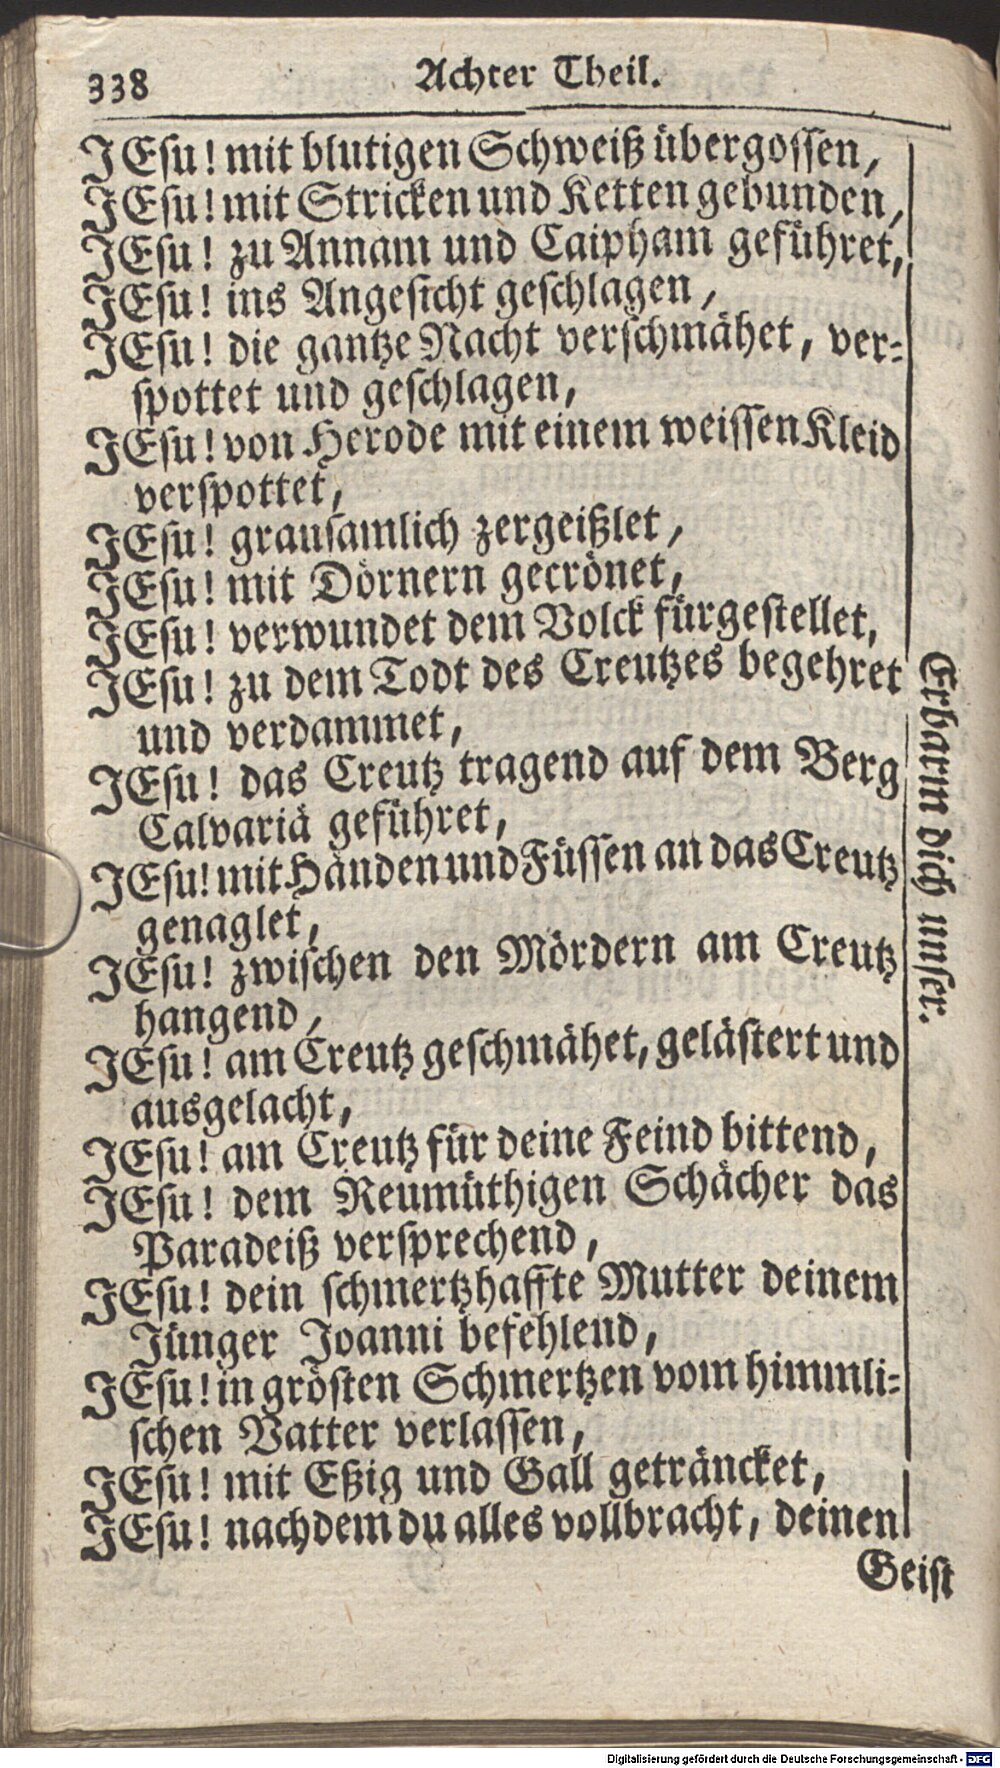 338
Achter Theil.
JEsu! mit blutigen Schweiß übergossen,
JEsu! mit Stricken und Ketten gebunden,
JEsu! zu Annam und Caipham geführet,
JEsu! ins Angesicht geschlagen,
JEsu! die gantze Nacht verschmähet, ver-
spottet und geschlagen,
JEsu! von Herode mit einem weissen Kleid
verspottet,
JEsu! grausamlich zergeißlet,
JEsu! mit Dörnern gecrönet,
JEsu! verwundet dem Volck fürgestellet,
JEsu! zu dem Todt des Creutzes begehret
und verdammet,
JEsu! das Creutz tragend auf dem Berg
Calvariä geführet,
JEsu! mit Händen und Füssen an das Creutz
genaglet,
JEsu! zwischen den Mördern am Creutz
hangend,
JEsu! am Creutz geschmähet, gelästert und
ausgelacht,
JEsu! am Creutz für deine Feind bittend,
JEsu! dem Reumüthigen Schächer das
Paradeiß versprechend,
JEsu! dein schmertzhaffte Mutter deinem
Jünger Joanni befehlend,
JEsu! in grösten Schmertzen vom himmli-
schen Vatter verlassen,
JEsu! mit Eßig und Gall geträncket,
JEsu! nachdem du alles vollbracht, deinen
Erbarm dich unser.
Geist
Digitalisierung gefördert durch die Deutsche Forschungsgemeinschaft - DFG